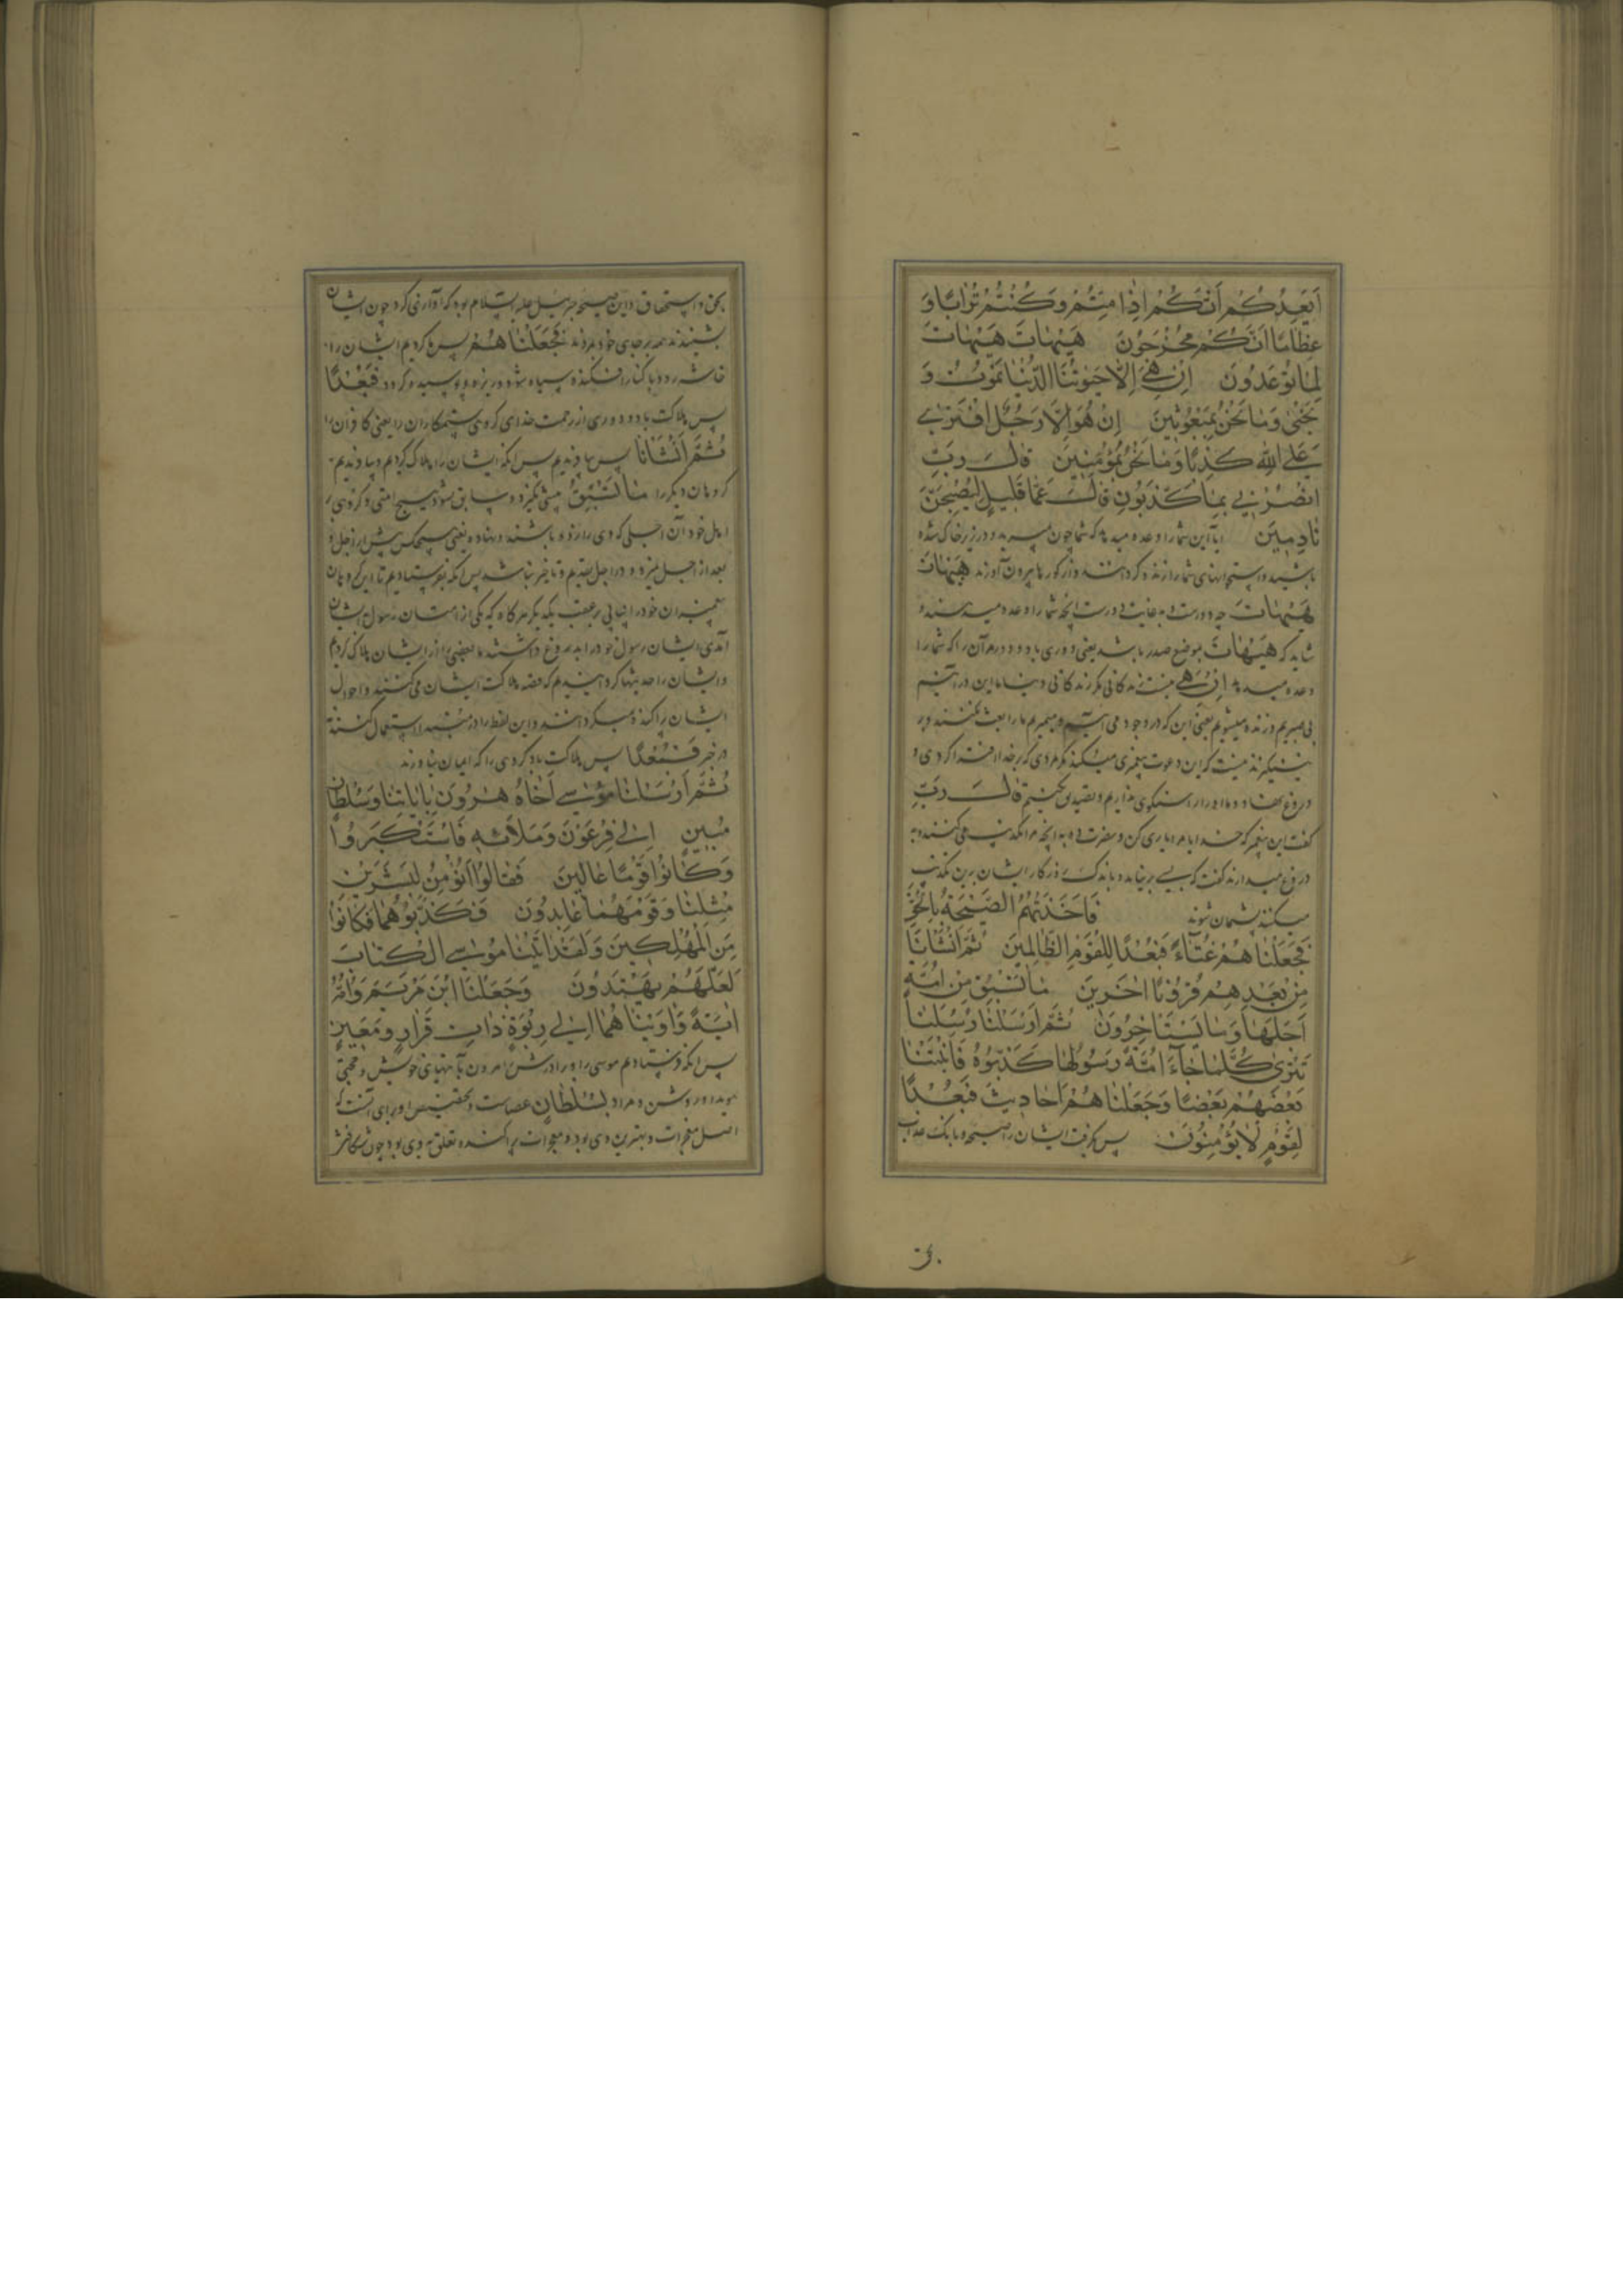 أَيَعِدُكُمْ أَنَّكُمْ إِذَا مِتُّمْ وَكُنْتُمْ تُرَابًا وَ
عِظَامًا أَنَّكُمْ مُخْرَجُونَ هَيْهَاتَ هَيْهَاتَ
لِمَا تُوعَدُونَ إِنْ هِيَ إِلَّا حَيَوتُنَا الدُّنْيَا نَمُوتُ وَ
نَحْيَى وَمَا نَحْنُ بِمَبْعُوثِينَ إِنْ هُوَ إِلَّا رَجُلٌ افْتَرَى
عَلَى اللَّهِ كَذِبًا وَمَا نَحْنُ لَهُ بِمُؤْمِنِينَ قَالَ رَبِّ
انْصُرْنِي بِمَا كَذَّبُونِ قَالَ عَمَّا قَلِيلٍ لَيُصْبِحُنَّ
نَادِمِينَ ایا این شما را وعده میدهد که شما چون بمیرید و در زیر خاک شده
باشید و استخوانهای شما را زنده کرداند و از کورها بیرون آورند هَيْهَاتَ
هَيْهَاتَ چه دورست و به غایت دورست آنچه شما را وعده میدهند و
شاید که هَيْهَاتَ بموضع مصدر باشد یعنی دوری باد و دور مر آن را که شما را
وعده میدهد إِنْ هِيَ نیست زندکانی مکر زندکانی دنیا ما این در آییم
می میریم و زنده میشویم یعنی این که در وجود می آییم و میمیریم ما را بعث نکنند و بر
نینکیزند نیست که این دعوت پیغمبری میکند مکر مردی که بر خدا افترا کردی و
دروغ بهتان و ما او را راستکوی نداریم و تصدیق نکنیم قَالَ رَبِّ
کفت این پیغمبر که خدایا مرا یاری کن و نصرت ده به آنچه مرا تکذیب می کنند و به
دروغ میدارند کفت که بسی برنیاید و باندک روزکار ایشان برین تکذیب
میکنند پشیمان شوند فَأَخَذَتْهُمُ الصَّيْحَةُ بِالْحَقِّ
فَجَعَلْنَاهُمْ غُثَاءً فَبُعْدًا لِلْقَوْمِ الظَّالِمِينَ ثُمَّ أَنْشَأْنَا
مِنْ بَعْدِهِمْ قُرُونًا آخَرِينَ مَا تَسْبِقُ مِنْ أُمَّةٍ
أَجَلَهَا وَمَا يَسْتَأْخِرُونَ ثُمَّ أَرْسَلْنَا رُسُلَنَا
تَتْرَى كُلَّمَا جَاءَ أُمَّةً رَسُولُهَا كَذَّبُوهُ فَأَتْبَعْنَا
بَعْضَهُمْ بَعْضًا وَجَعَلْنَاهُمْ أَحَادِيثَ فَبُعْدًا
لِقَوْمٍ لَا يُؤْمِنُونَ پس بکرفت ایشان را صیحه و بانک عذاب
بحق و استحقاق و این صیحه جبرئیل علیه السلام بود که آوازی کرد چون ایشان
بشنیدند همه بر جای خود مردند فَجَعَلْنَاهُمْ پس کردیم ایشان را
پس هلاکت باد و دوری از رحمت خدای کروهی ستمکاران را یعنی کافران را
ثُمَّ أَنْشَأْنَا پس بیافریدیم پس آنکه ایشان را هلاک کردیم و بیافریدیم
کروهان دیکر را مَا تَسْبِقُ پیشی نکیرد و سابق نشود هیچ امتی و کروهی
بعد از اجل نمیرد و در اجل تقدیم و تاخیر نباشد پس آنکه بفرستادیم تا این کروهان
پیغمبران خود را پیاپی بر عقب یکدیکر هرکاه که یکی از امتان رسول ایشان
آمدی ایشان رسول خود را به دروغ داشتند ما بعضی را از ایشان هلاک کردیم
و ایشان را حدیثها کردانیدیم که قصه هلاکت ایشان می کنند و احوال
ایشان پراکنده میکردانند و این لفظ را در شر استعمال کنند نه
در خیر فَبُعْدًا پس هلاکت باد کروهی را که ایمان نیاورند
ثُمَّ أَرْسَلْنَا مُوسَى أَخَاهُ هَرُونَ بِآيَاتِنَا وَسُلْطَانٍ
مُبِينٍ إِلَى فِرْعَوْنَ وَمَلَائِهِ فَاسْتَكْبَرُوا
وَكَانُوا قَوْمًا عَالِينَ فَقَالُوا أَنُؤْمِنُ لِبَشَرَيْنِ
مِثْلِنَا وَقَوْمُهُمَا عَابِدُونَ فَكَذَّبُوهُمَا فَكَانُوا
مِنَ الْمُهْلَكِينَ وَلَقَدْ آتَيْنَا مُوسَى الْكِتَابَ
لَعَلَّهُمْ يَهْتَدُونَ وَجَعَلْنَا ابْنَ مَرْيَمَ وَأُمَّهُ
آيَةً وَآوَيْنَاهُمَا إِلَى رَبْوَةٍ ذَاتِ قَرَارٍ وَمَعِينٍ
پس آنکه فرستادیم موسی را و برادرش هرون بآیتهای خویش و حجتی
هویدا و روشن و مراد بِسُلْطَانٍ عصاست و تخصیص او برای آنست که
اصل معجزات و بهترین وی بود و معجزات پراکنده تعلق به وی بود چون شکافتن
بحق